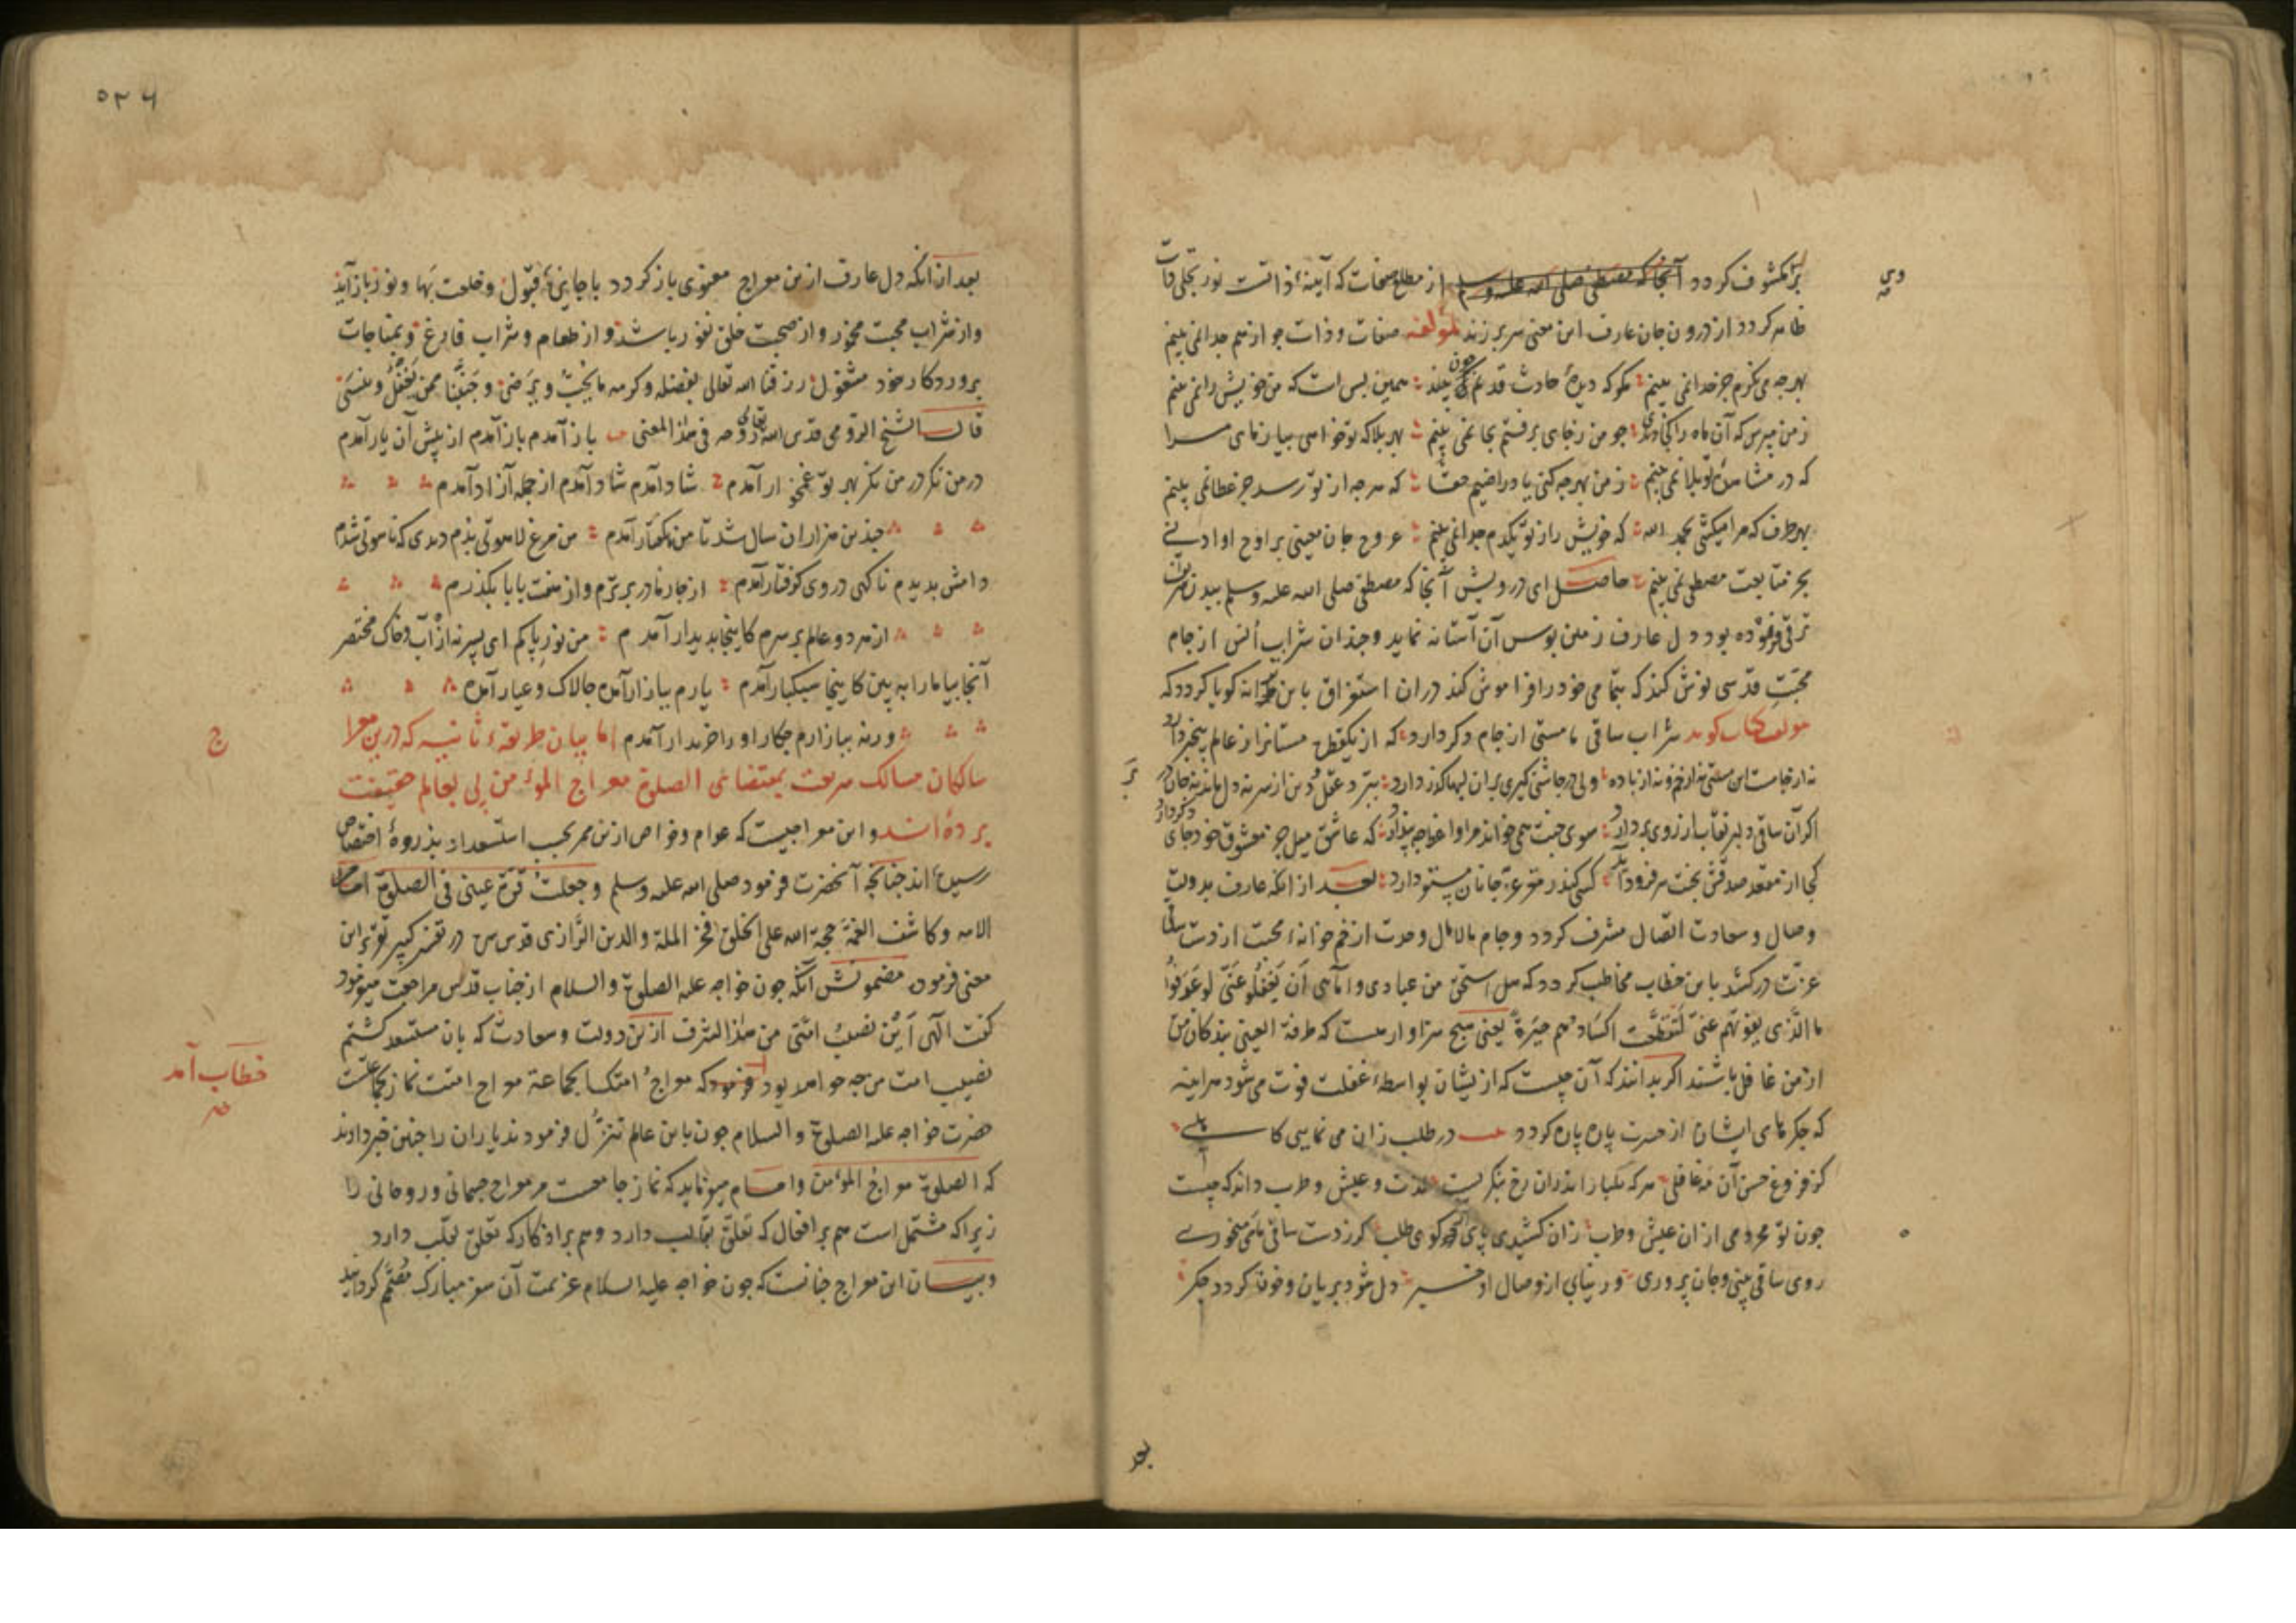 بر مکشوف کردد آنجا که مصطفی صلی الله علیه وسلم از مطلع صفات که آینهٔ ذاتست نور تجلی ذات
ظاهر کردد از درون جان عارف این معنی سر بر زند لمؤلفه صفات و ذات چو از هم جدا نمی بینم
بهر چه می نکرم جز خدا نمی بینم مکو که دیدهٔ حادث قدیم چون بیند همین بس است که من خویش را نمی بینم
ز من مپرس که آن ماه را کجا دیدی چو من ز جای برفتم بجا نمی بینم بهر بلا که تو خواهی بیازمای مرا
که در مشاهدهٔ تو بلا نمی بینم ز من بهر چه کنی یاد راضیم حقا که هر چه از تو رسد جز عطا نمی بینم
بهر طرف که مرا میکشی بحمد الله که خویش را ز تو یکدم جدا نمی بینم عروج جان معینی بر اوج او ادنی
بجز متابعت مصطفی نمی بینم حاصل ای درویش آنجا که مصطفی صلی الله علیه وسلم
ترقی فرموده بود دل عارف زمین بوس آن آستانه نماید و چندان شراب انس از جام
محبت قدسی نوش کند که بتمامی خود را فراموش کند در آن استغراق باین ترانه کویا کردد که
مولف کتاب کوید شراب ساقی ما مستی از جام دکر دارد که از یکقطره مستانرا ز عالم بیخبر دارد
نه از جامست این مستی نه از خم و نه از باده ولی در چاشنی کیری بر آن لبها کذر دارد ببرد عقل و دین از سر نه دل ماند نه جان در بر
اکر آن ساقی دلبر نقاب از روی بردارد سوی جنت همی خواند مرا واعظ چه پندارد که عاشق میل جز معشوق خود جای دکر دارد
کجا از مقعد صدقش بجنت سر فرود آید کسی کندر مقر عز جانان مستقر دارد بعد از آنکه عارف بدولت
وصال و سعادت اتصال مشرف کردد و جام مالامال وحدت از خم خانهٔ محبت از دست ساقی
عزت درکشد باین خطاب مخاطب کردد که هل استحق من عبادی و امآئی ان یغفلو عنی لو عرفوا
ما الذی یفوتهم عنی لتقطعت اکبادهم حیرة یعنی هیچ سزاوار هست که طرفة العینی بندکان من
از من غافل باشند اکر بدانند که آن چیست که از یشان بواسطهٔ غفلت فوت می شود هر آینه
که جکرهای ایشان از حسرت پاره پاره کردد در طلب زان می نمایی کاهلی
کز فروغ حسن آن مه غافلی هر که یکبار اندران رخ بنکریست لذت و عیش و طرب داند که چیست
چون تو محرومی از آن عیش و طرب زان کشیدی پای از کوی طلب کر ز دست ساقی ما می خوری
روی ساقی بینی و جان پروری ور نیابی از وصال او خبر دل شود بریان و خون کردد جکر
بعد
۵۲۶
بعد از آنکه دل عارف ازین معراج معنوی باز کردد با جایزهٔ قبول و خلعت بها و نور باز آید
و از شراب محبت مخمور و از صحبت خلق نفور باشد و از طعام و شراب فارغ و بمناجات
پروردکار خود مشغول رزقنا الله تعالی بفضله وکرمه ما یحب ویرضی وجنبنا عمن یغفل وینسی
قال الشیخ الرومی قدس الله تعالی روحه فی هذا المعنی باز آمدم باز آمدم از پیش آن یار آمدم
در من نکر در من نکر بهر تو غمخوار آمدم شاد آمدم شاد آمدم از جمله آزاد آمدم
چندین هزاران سال شد تا من بکفتار آمدم من مرغ لاهوتی بدم دیدی که ناسوتی شدم
دامش بدیدم ناکهی در وی کرفتار آمدم از چار مادر برترم و از هفت بابا بکذرم
از هر دو عالم بر سرم کاینجا بدیدار آمدم من نور پاکم ای پسر نه از آب و خاک مختصر
آنجا بیا مارا ببین کاینجا سبکبار آمدم یارم ببازار آمده چالاک و عیار آمده
ورنه ببازارم چکار او را خریدار آمدم اما بیان طریقهٔ ثانیه که درین معراج
سالکان مسالک شریعت بمقتضای الصلوة معراج المؤمن پی بعالم حقیقت
برده اند و این معراجیست که عوام و خواص ازین ممر بحسب استعداد بذروهٔ اختصاص
رسیده اند چنانچه آنحضرت فرمود صلی الله علیه وسلم وجعلت قرة عینی فی الصلوة امام
الامه وکاشف الغمه حجة الله علی الخلق فخر الملة والدین الرازی قدس سره در تفسیر کبیر تقریر این
معنی فرموده مضمونش آنکه چون خواجه علیه الصلوة والسلام از جناب قدس مراجعت میفرمود
کفت الهی این نصیب امتی من هذا الشرف ازین دولت و سعادت که بان مستسعد کشتم
نصیب امت من چه خواهد بود فرمود که معراج امتک الجماعة معراج امتت نماز بجماعتست
حضرت خواجه علیه الصلوة والسلام چون باین عالم تنزل فرمودند یاران را چنین خبر دادند
که الصلوة معراج المؤمن و امام میفرماید که نماز جامعست مر معراج جسمانی و روحانی را
زیرا که مشتمل است هم بر افعال که تعلق بقالب دارد و هم بر اذکار که تعلق بقلب دارد
و بیان این معراج چنانست که چون خواجه علیه السلام عزیمت آن سفر مبارک مصمم کردانید
ج
خطاب آمد